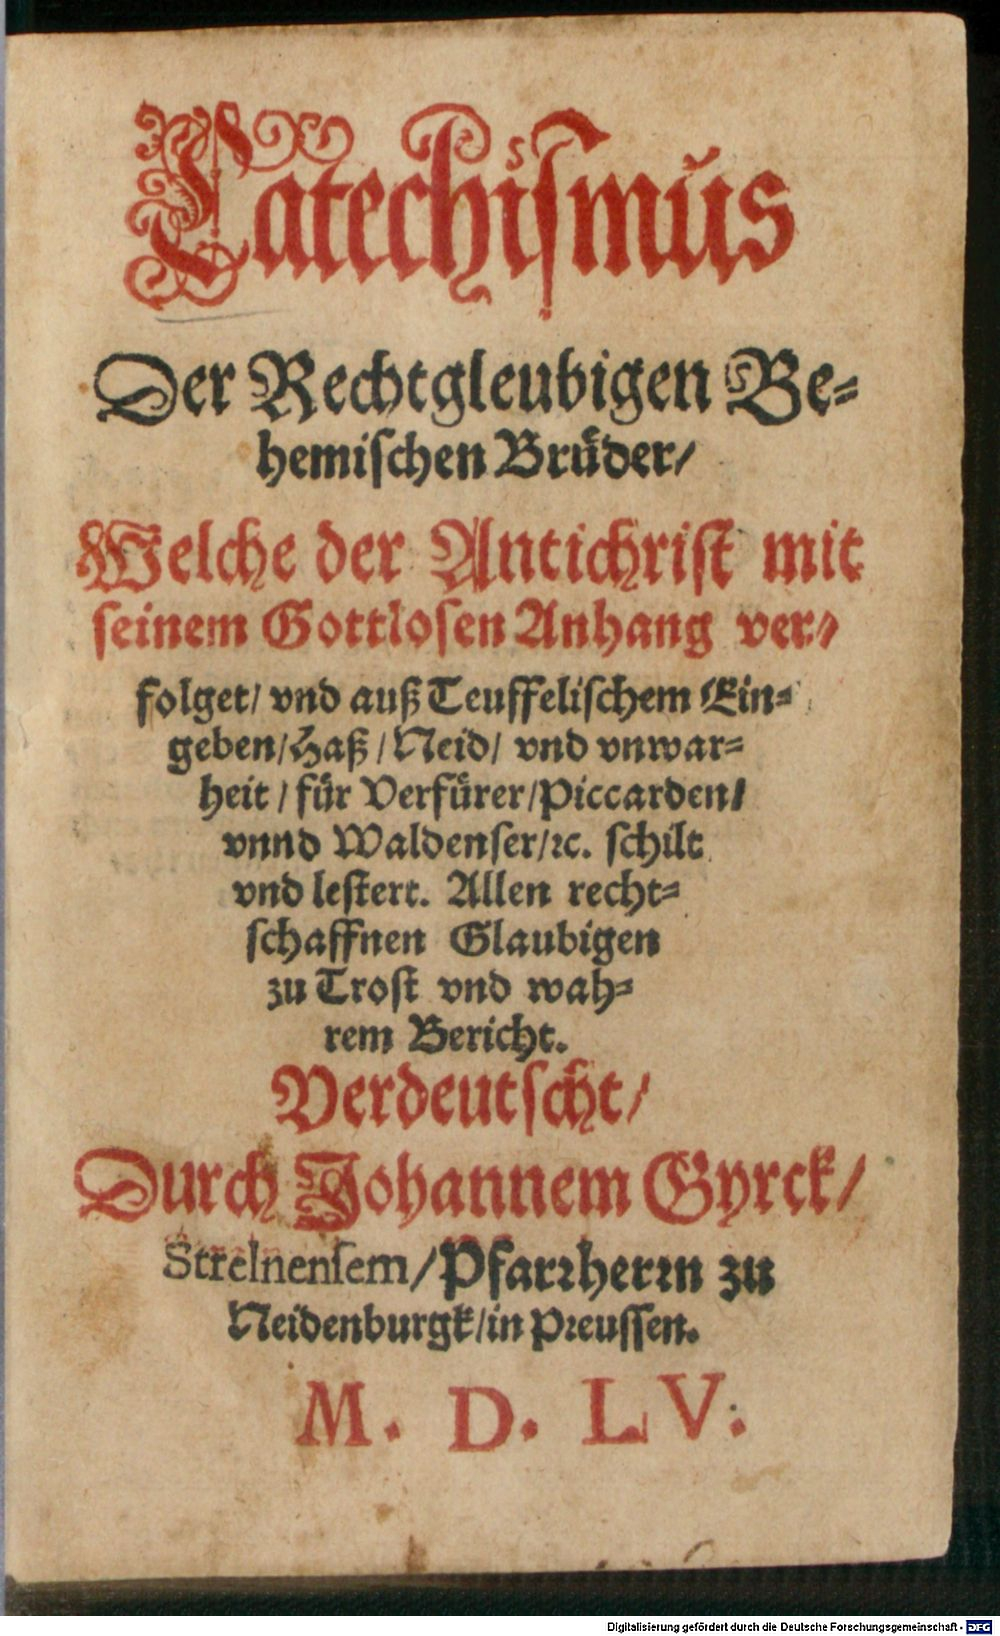 Catechiſmus
Der Rechtgleubigen Be⸗
hemiſchen Bruͤder/
Welche der Antichriſt mit
ſeinem Gottloſen Anhang ver⸗/
folget/ vnd auß Teuffeliſchem Ein⸗
geben/Haß/Neid/ vnd vnwar⸗
heit/ fuͤr Verfuͤrer/Piccarden/
vnnd Waldenſer/ꝛc. ſchilt
vnd leſtert. Allen recht⸗
ſchaffnen Glaubigen
zu Troſt vnd wah⸗
rem Bericht.
Verdeutſcht/
Durch Johannem Gyrck/
Strelnenſem/Pfarꝛherꝛn zu
Neidenburgk/in Pꝛeuſſen.
M. D. LV.
Digitalisierung gefördert durch die Deutsche Forschungsgemeinschaft - DFG